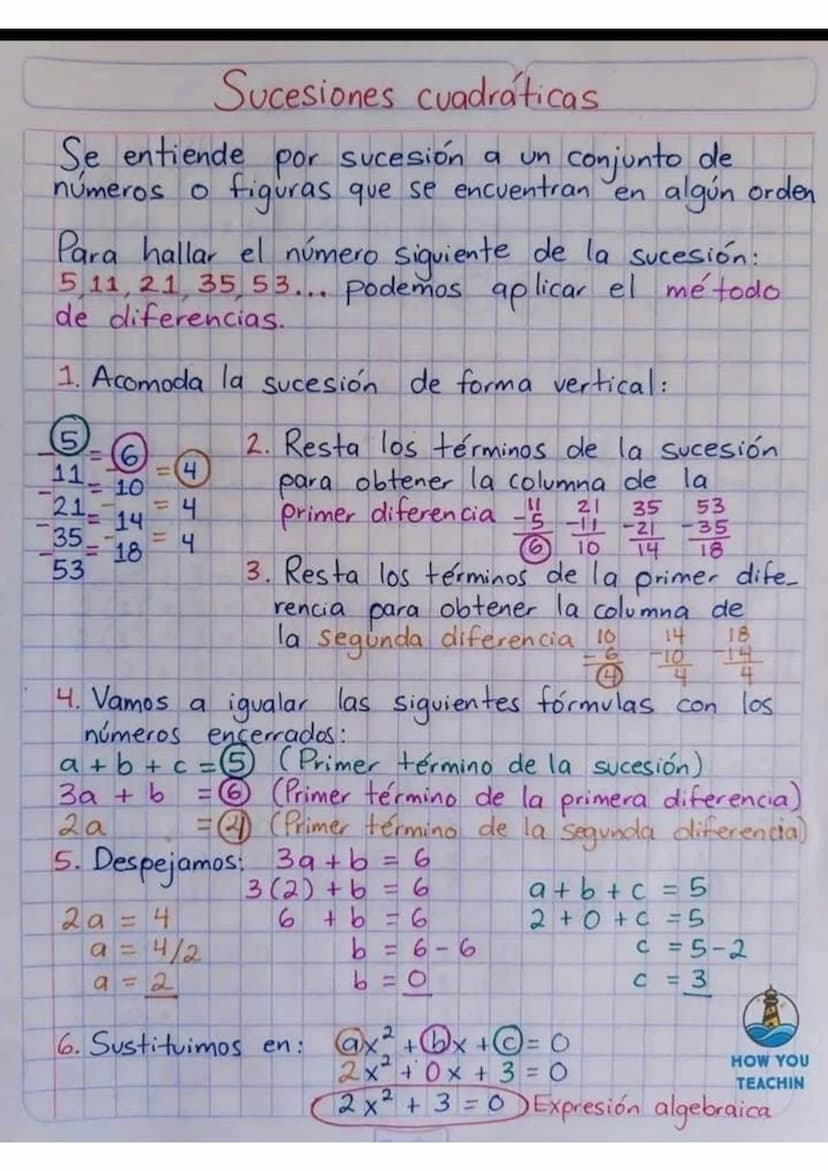 Sucesiones cuadráticas
Se entiende por sucesión a un conjunto de
números o figuras que se encuentran en algún orden
Para hallar el número siguiente de la sucesión:
5, 11, 21, 35, 53... podemos aplicar el método
de diferencias.
1. Acomoda la sucesión de forma vertical:
5
- = 6
11 - = 4
- = 10
21 - = 4
- = 14
35 - = 4
- = 18
53
2. Resta los términos de la sucesión
para obtener la columna de la
primer diferencia
11 21 35 53
-5 -11 -21 -35
6 10 14 18
3. Resta los términos de la primer dife-
rencia para obtener la columna de
la segunda diferencia
10 14 18
-6 -10 -14
4 4 4
4. Vamos a igualar las siguientes fórmulas con los
números encerrados:
a + b + c = 5 (Primer término de la sucesión)
3a + b = 6 (Primer término de la primera diferencia)
2a = 4 (Primer término de la segunda diferencia)
5. Despejamos:
2a = 4
a = 4/2
a = 2
3a + b = 6
3(2) + b = 6
6 + b = 6
b = 6 - 6
b = 0
a + b + c = 5
2 + 0 + c = 5
c = 5 - 2
c = 3
6. Sustituimos en: ax² + bx + c = 0
2x² + 0x + 3 = 0
2x² + 3 = 0 Expresión algebraica
HOW YOU
TEACHIN